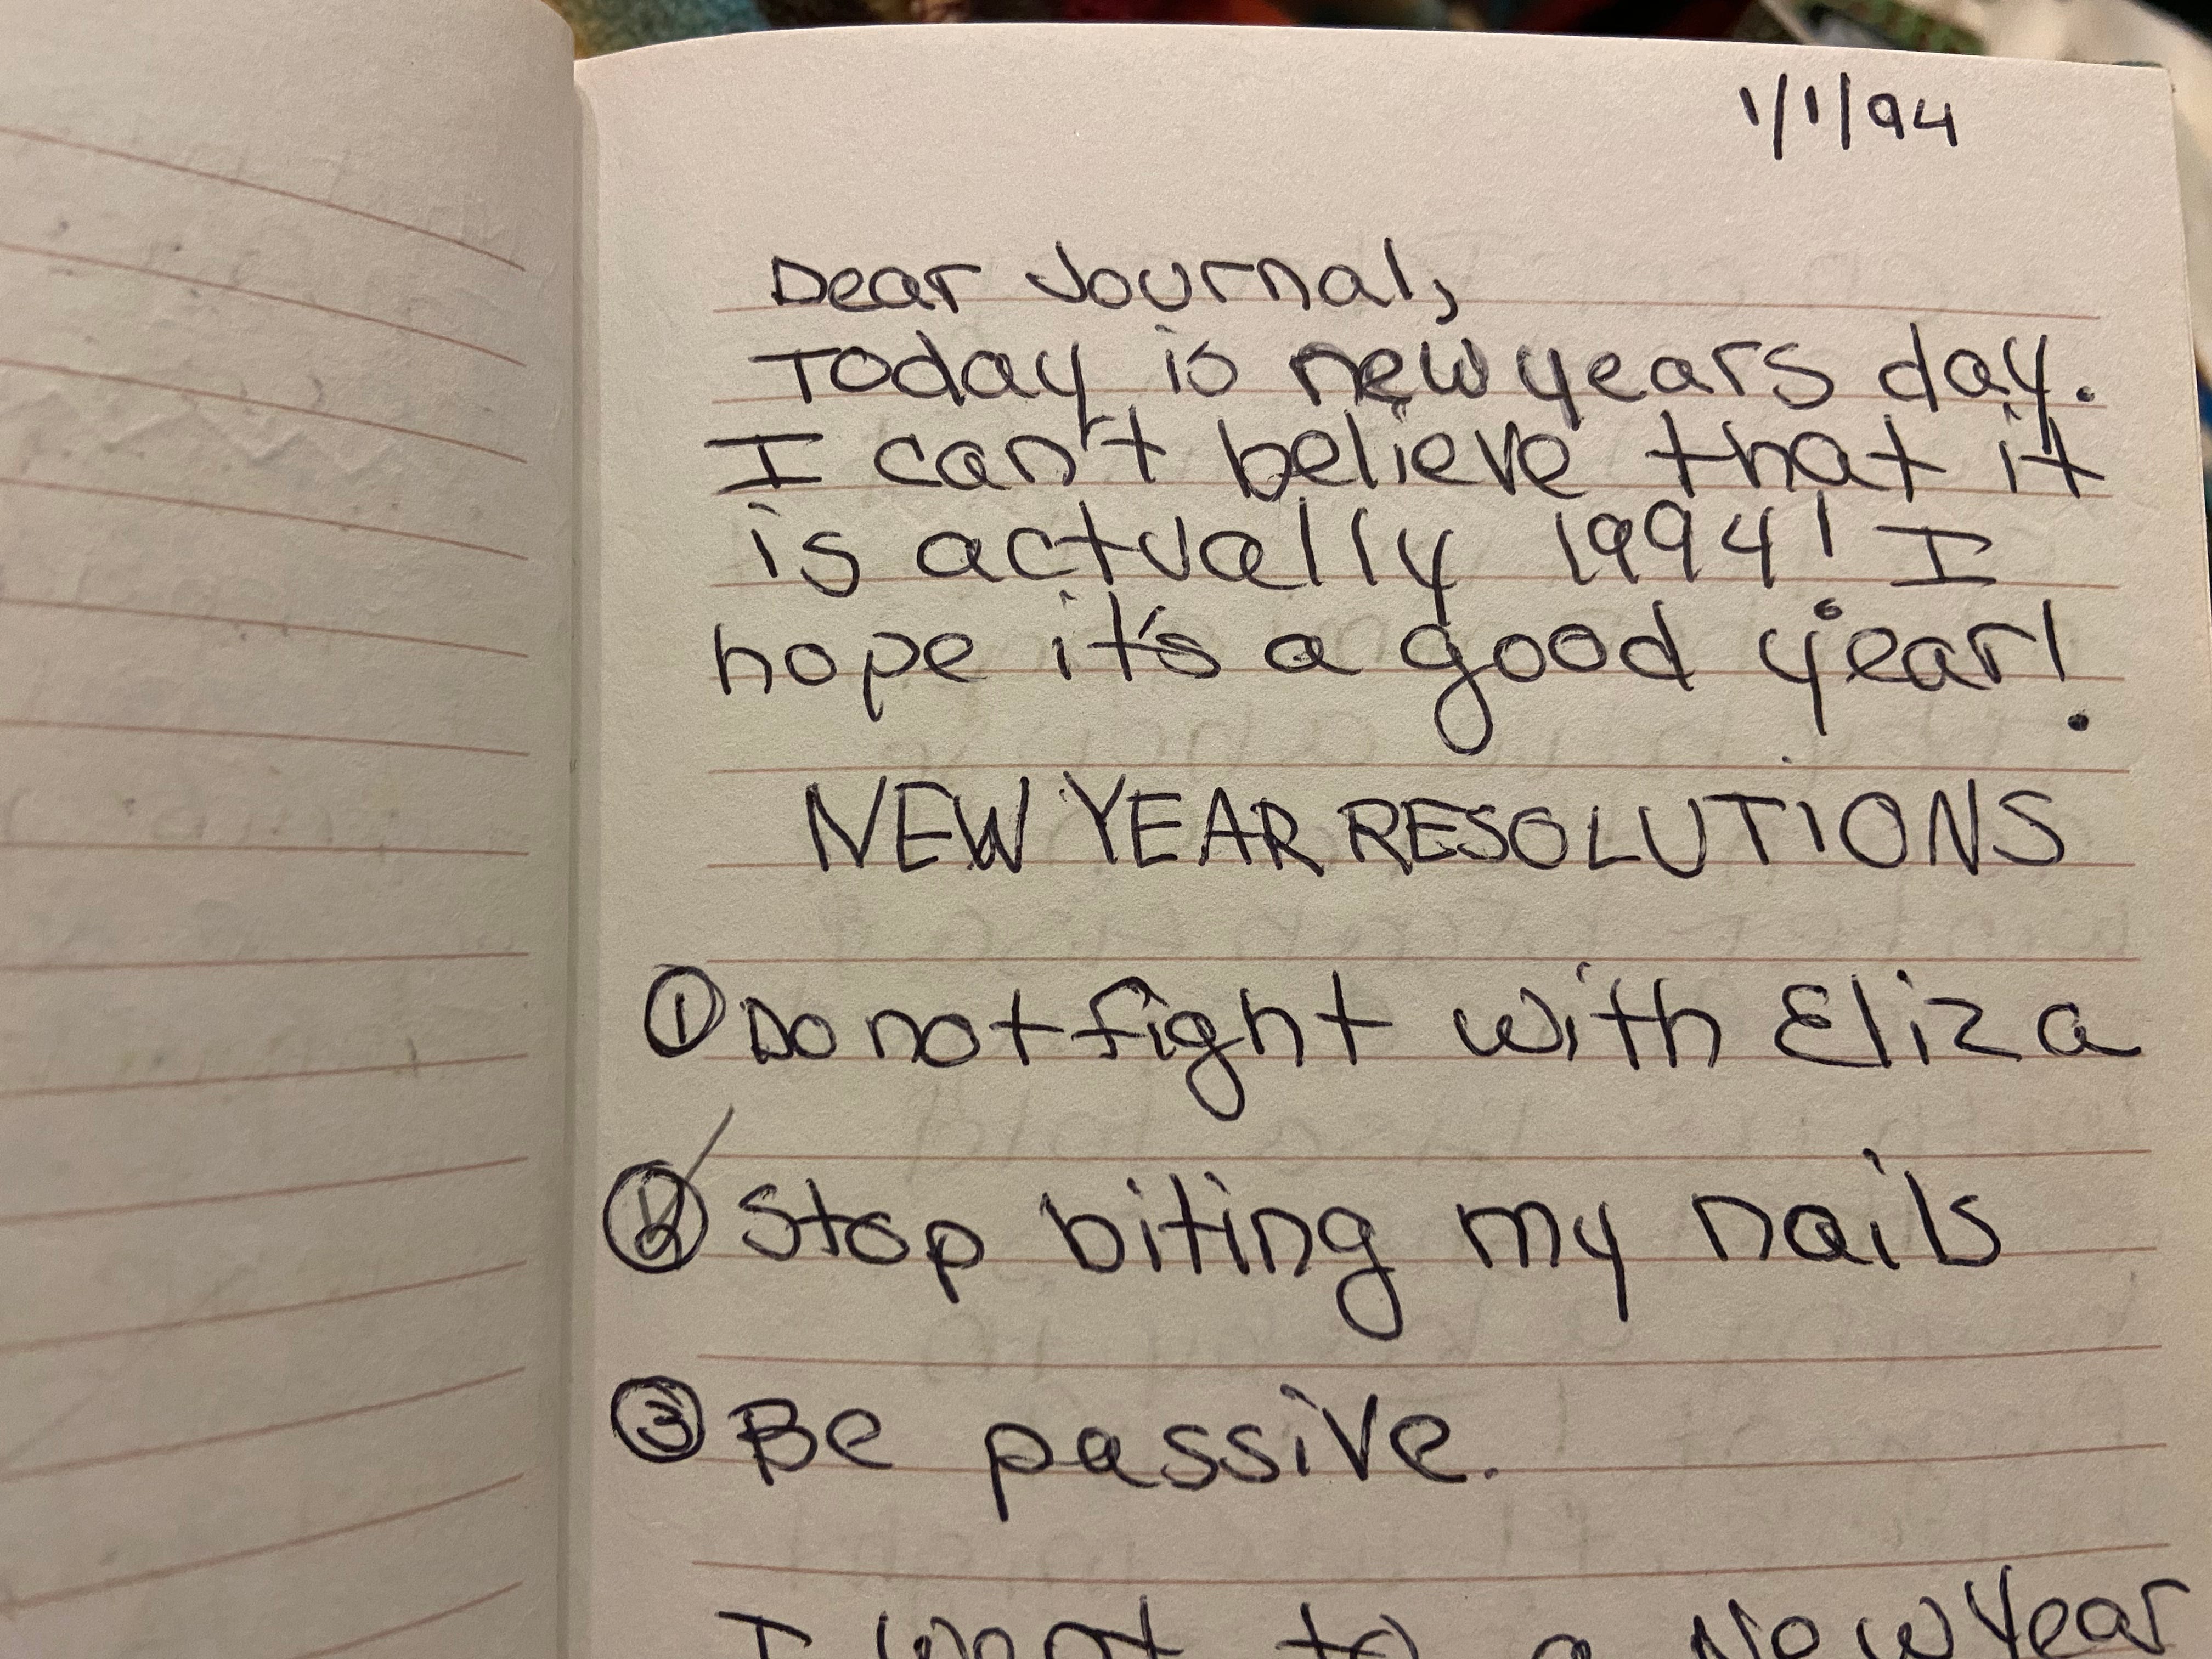 1/1/94
Dear Journal,
Today is new years day.
I can't believe that it
is actually 1994! I
hope it's a good year!
NEW YEAR RESOLUTIONS
① Do not fight with Eliza
② Stop biting my nails
③ Be passive.
I went to a New Year